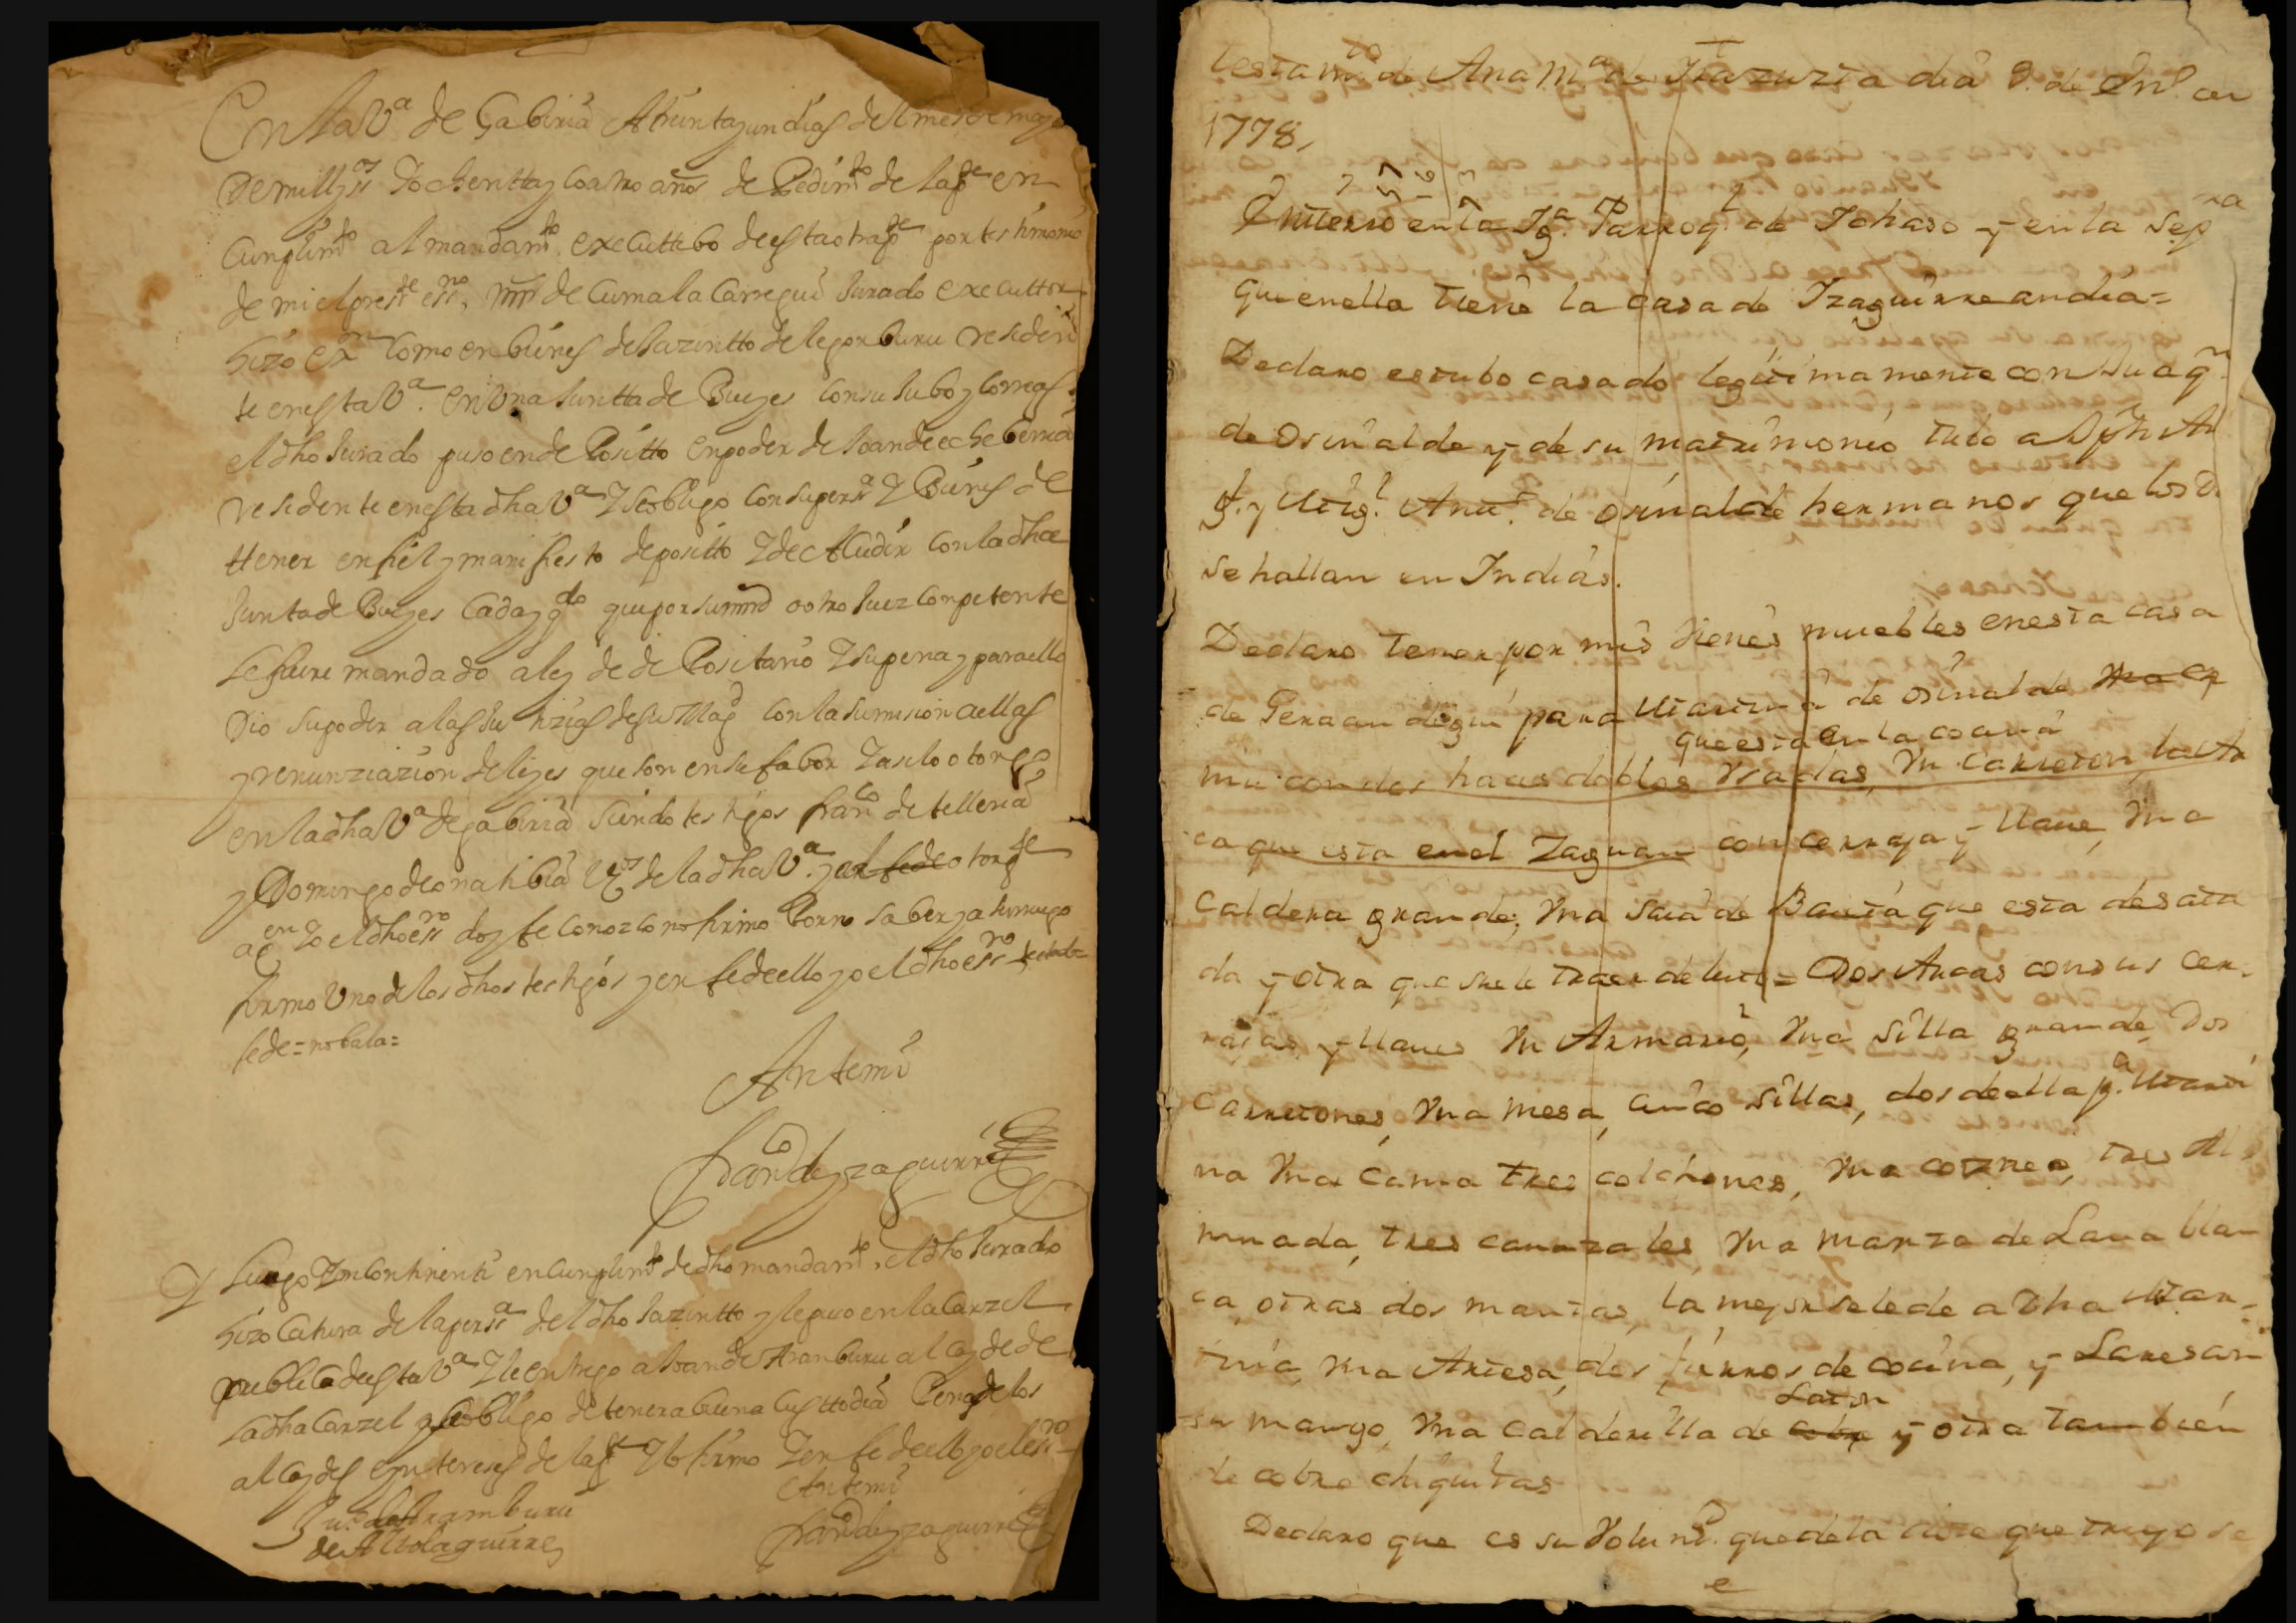 En la V.a de Gabiria A treinta y un dias del mes de mayo
De mill y ss.os Y ochentta y coatro años de Pedim.to de la p.te en
Cunplim.to al mandam.to executtibo de esta otra p.te por testimonio
de mi el pres.te ess.no, Mrn de Cumalacarregui Jurado executtor
hizo ex.on como en bienes de Jazintto de legorburu residen
te en esta V.a. en Una Juntta de Bueyes con su Jubo y correas
el dho Jurado puso en dePositto en poder de Joan de echeberria
residente en esta dha V.a Y se obligo con su perss.a Y Bienes de
ttener en fiel y manifiesto depositto Y de Acudir con la dha
Junta de Bueyes Cada y q.do que por su mrd o otro Juez conpetente
le fuere mandado a ley de dePositario Y su pena y para ello
Dio su poder a las Justizias de su Mag.d con la sumision a ellas
y renunziazion de leyes que son en su fabor Y asi lo otorgo
en la dha V.a de gabiria siendo testigos fran.co de telleria
y Domingo de onatibia V.os de la dha V.a. y al fede otorg.te
a q.en Yo el dho ess.no doy fe conozco no firmo Por no saber y a su ruego
firmo Uno de los dhos testigos y en fe de ello yo el dho ess.no
fede = no bala =
Ante mi
Fran.co de yzaguirre
Y Luego Yncontinenti en cunplim.to de dho mandam.to, el dho Jurado
hizo Catura de la perss.a del dho Jazintto y le puso en la Carzel
publica de esta V.a Y le entrego a Joan de Aranburu alcayde de
la dha Carzel y se obligo de tener a buena custtodia Pena de los
alcaydes e yntereses de la p.te Y lo firmo Y en fe de ello yo el ess.no
Ante mi
Ju.o de Aramburu
de Altolaguirre
Fran.co de yzaguirre
testam.to de Ana M.a de Itazuzta dia 9. de En.o de
1778,
Entierro en la Ig.a Parroq.l de Ichaso y en la Sep.ra
que en ella tiene la casa de Izaguirre andia =
Declaro estubo casado legitimamente con Juaq.n
de Osinalde y de su matrimonio tubo a
y Mig.l Ant.o de osinalde hermanos que los D.
se hallan en Indias.
Declaro tener por mis Vienes muebles en esta casa
de Geraandegui para Martina de osinalde Una
que esta en la cocina
mu con dos haces dobles Usadas, Un Carreton, la Ar
ca que esta en el Zaguan con cerraja y llave, Una
Caldera grande, Una saia de Baieta que esta desata
da y otra que suele traer de luto = Dos Arcas con sus cer-
rajas y llaves Un Armario, Una silla grande, Dos
Carretones, Una mesa, cinco sillas, dos de ella p.a Marti
na Una Cama tres colchones, Una cotrea, tres Al
muada, tres cavezales, Una manta de Lana blan
ca, otras dos mantas, la mejor se le de a Dha Mar-
tina, Una Artesa, dos fierros de cocina, y
Laton
su mango, Una calderilla de cobre y otra tambien
de cobre chiquitas
Declaro que es su Volunt.d que de la que trujo se
e